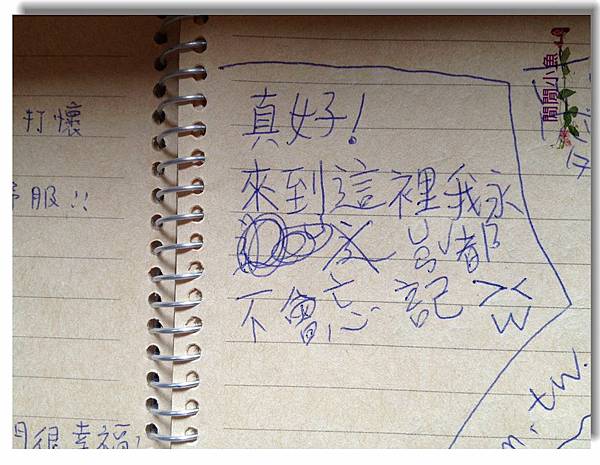 打懷
服!!
很幸福!
真好!
來到這裡我永
都
不會忘記
閒閒小魚
.tw.